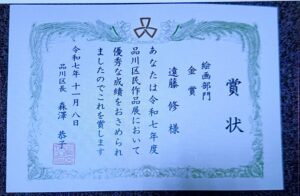 賞状
絵画部門
金賞
遠藤 修 様
あなたは令和七年度
品川区民作品展において
優秀な成績をおさめられ
ましたのでこれを賞します
令和七年十一月八日
品川区長 森澤恭子